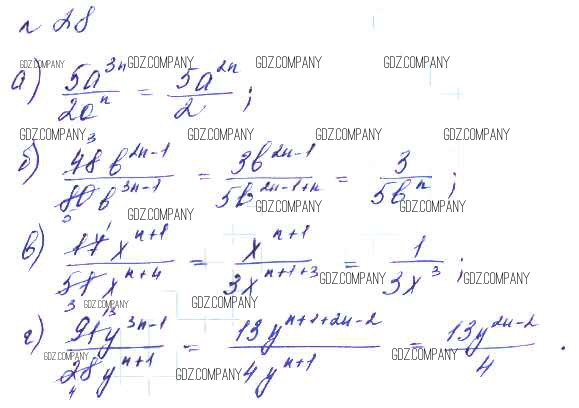 н 28
GDZ.COMPANY GDZ.COMPANY GDZ.COMPANY GDZ.COMPANY
а) 5a^{3n} / 2a^{n} = 5a^{2n} / 2 ;
GDZ.COMPANY GDZ.COMPANY GDZ.COMPANY GDZ.COMPANY
б) 48^{3} b^{2n-1} / 80_{5} b^{3n-1} = 3b^{2n-1} / 5b^{2n-1+n} = 3 / 5b^{n} ;
GDZ.COMPANY GDZ.COMPANY GDZ.COMPANY
в) 17^{1} x^{n+1} / 51_{3} x^{n+4} = x^{n+1} / 3x^{n+1+3} = 1 / 3x^{3} ;
GDZ.COMPANY GDZ.COMPANY
GDZ.COMPANY GDZ.COMPANY
г) 91^{13} y^{3n-1} / 28_{4} y^{n+1} = 13y^{n+1+2n-2} / 4y^{n+1} = 13y^{2n-2} / 4 .
GDZ.COMPANY GDZ.COMPANY
GDZ.COMPANY